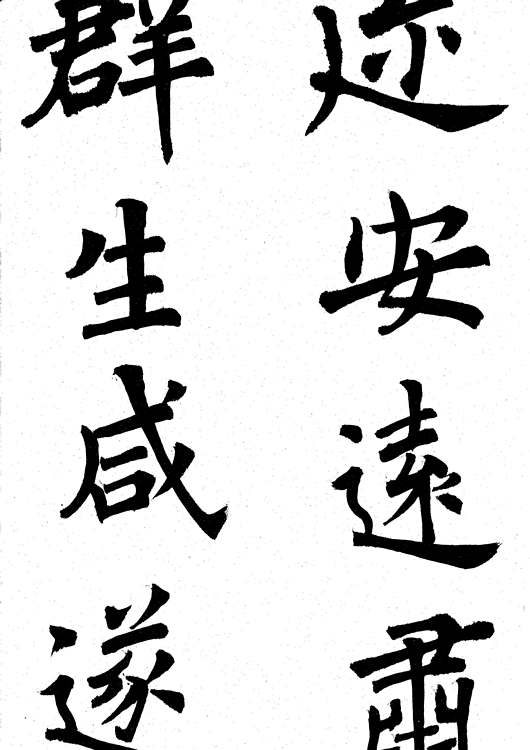 迩安遠肅
群生咸遂